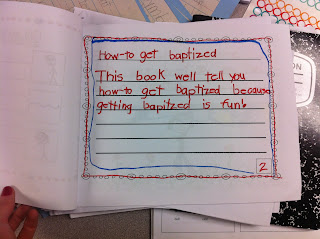 How-to get baptized
This book well tell you
how-to get baptized because
getting bapitzed is fun!
2